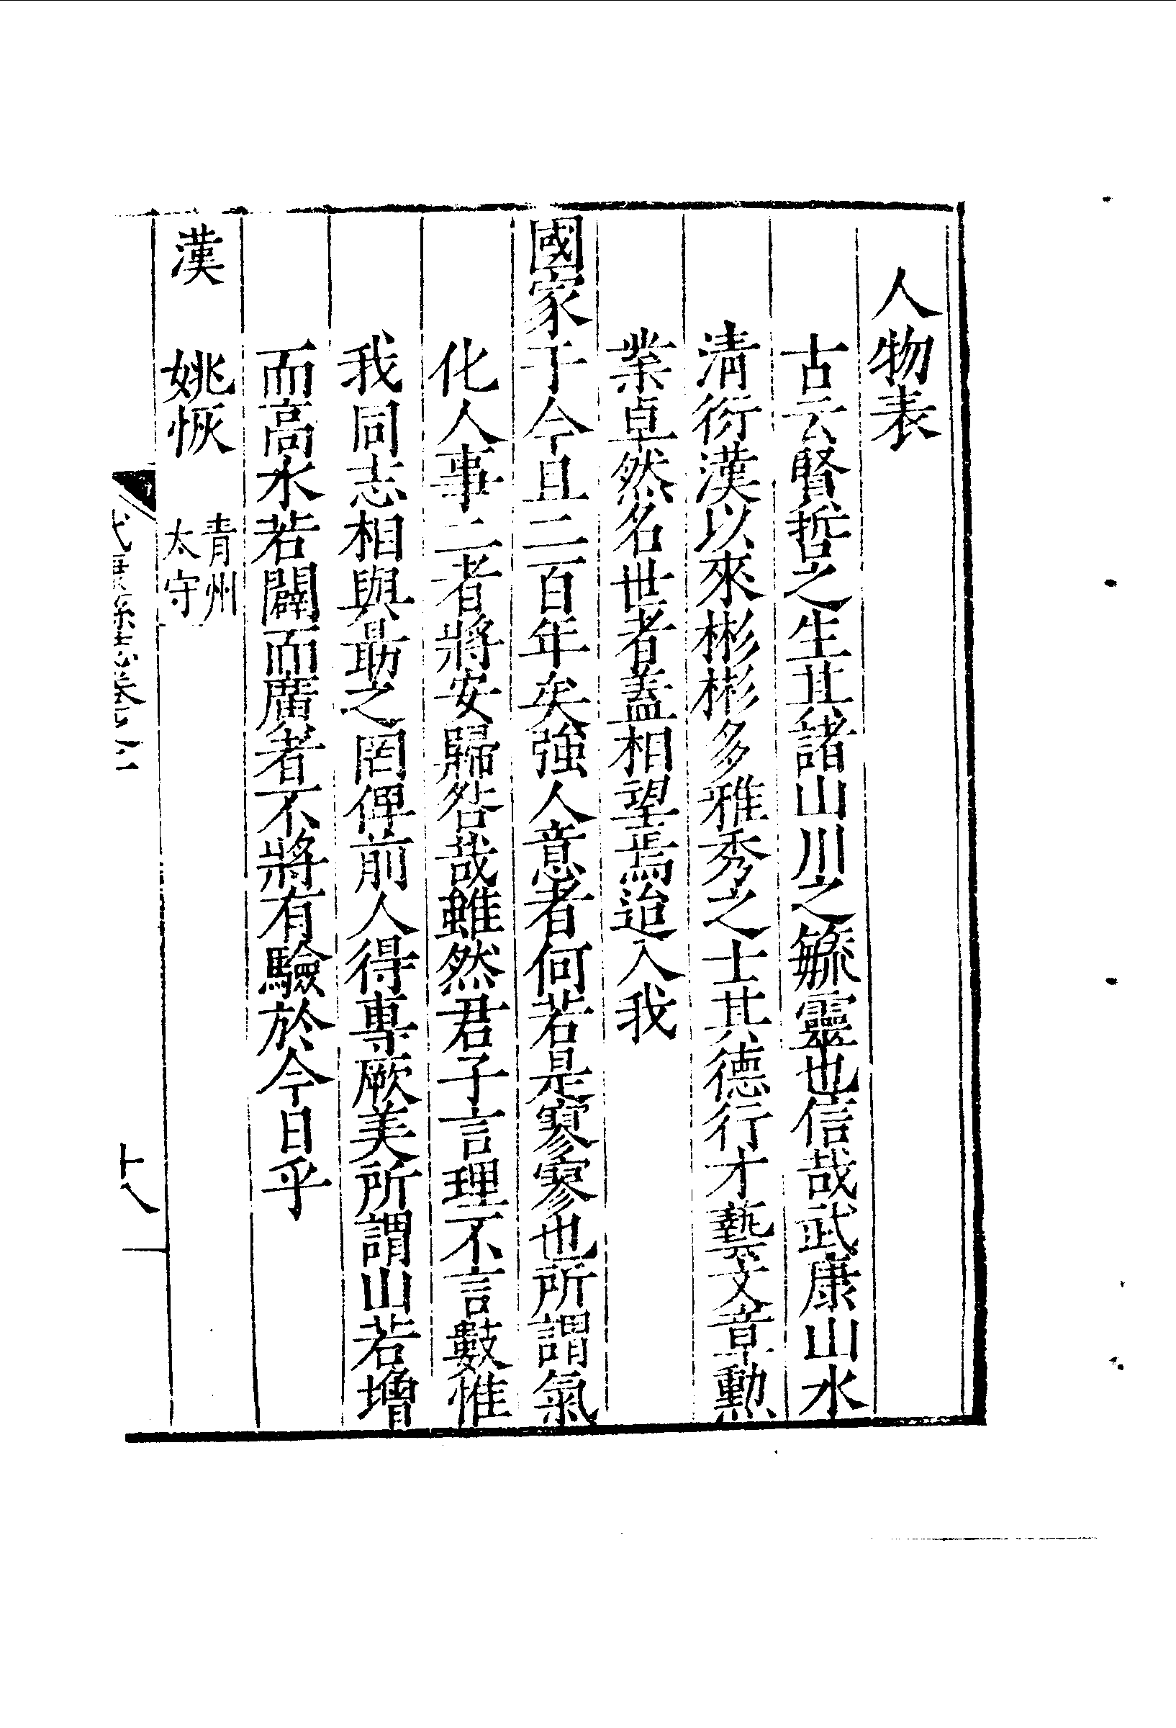 人物表
古云賢哲之生其諸山川之毓靈也信哉武康山水
清衍漢以來彬彬多雅秀之士其德行才藝文章勳
業卓然名世者蓋相望焉迨入我
國家于今且二百年矣強人意者何若是寥寥也所謂氣
化人事二者將安歸咎哉雖然君子言理不言數惟
我同志相與勗之罔俾前人得專厥美所謂山若增
而高水若闢而廣者不將有驗於今日乎
漢 姚恢 青州太守
武康縣志卷之二
十八